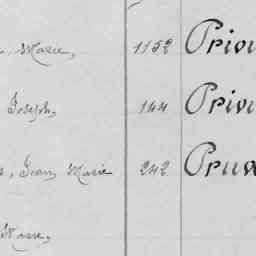 Marie, 1152 Priou
Joseph, 144 Priv
Jean Marie 242 Pruv